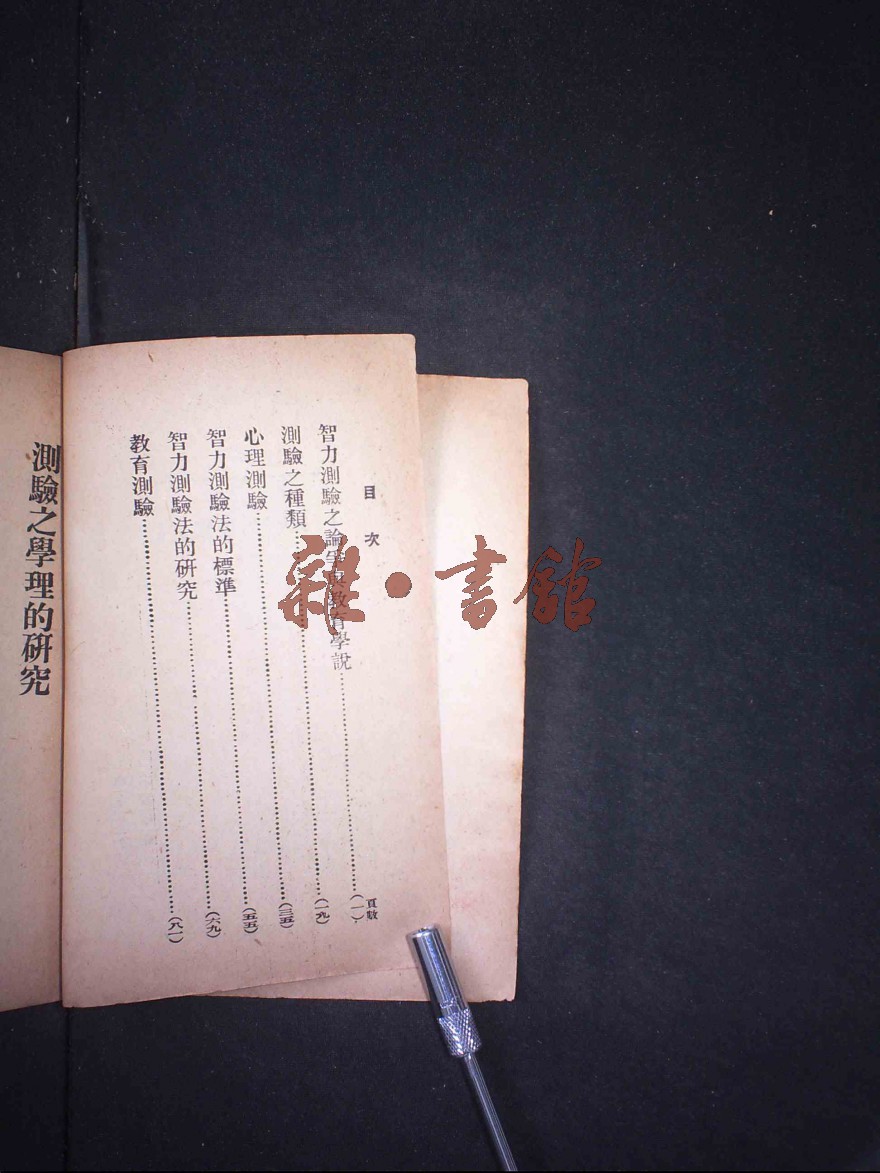 目次
頁數
智力測驗之論爭與教育學說……(一)
測驗之種類……(一九)
心理測驗……(三五)
智力測驗法的標準……(五五)
智力測驗法的研究……(六九)
教育測驗……(八一)
測驗之學理的研究
雜·書館